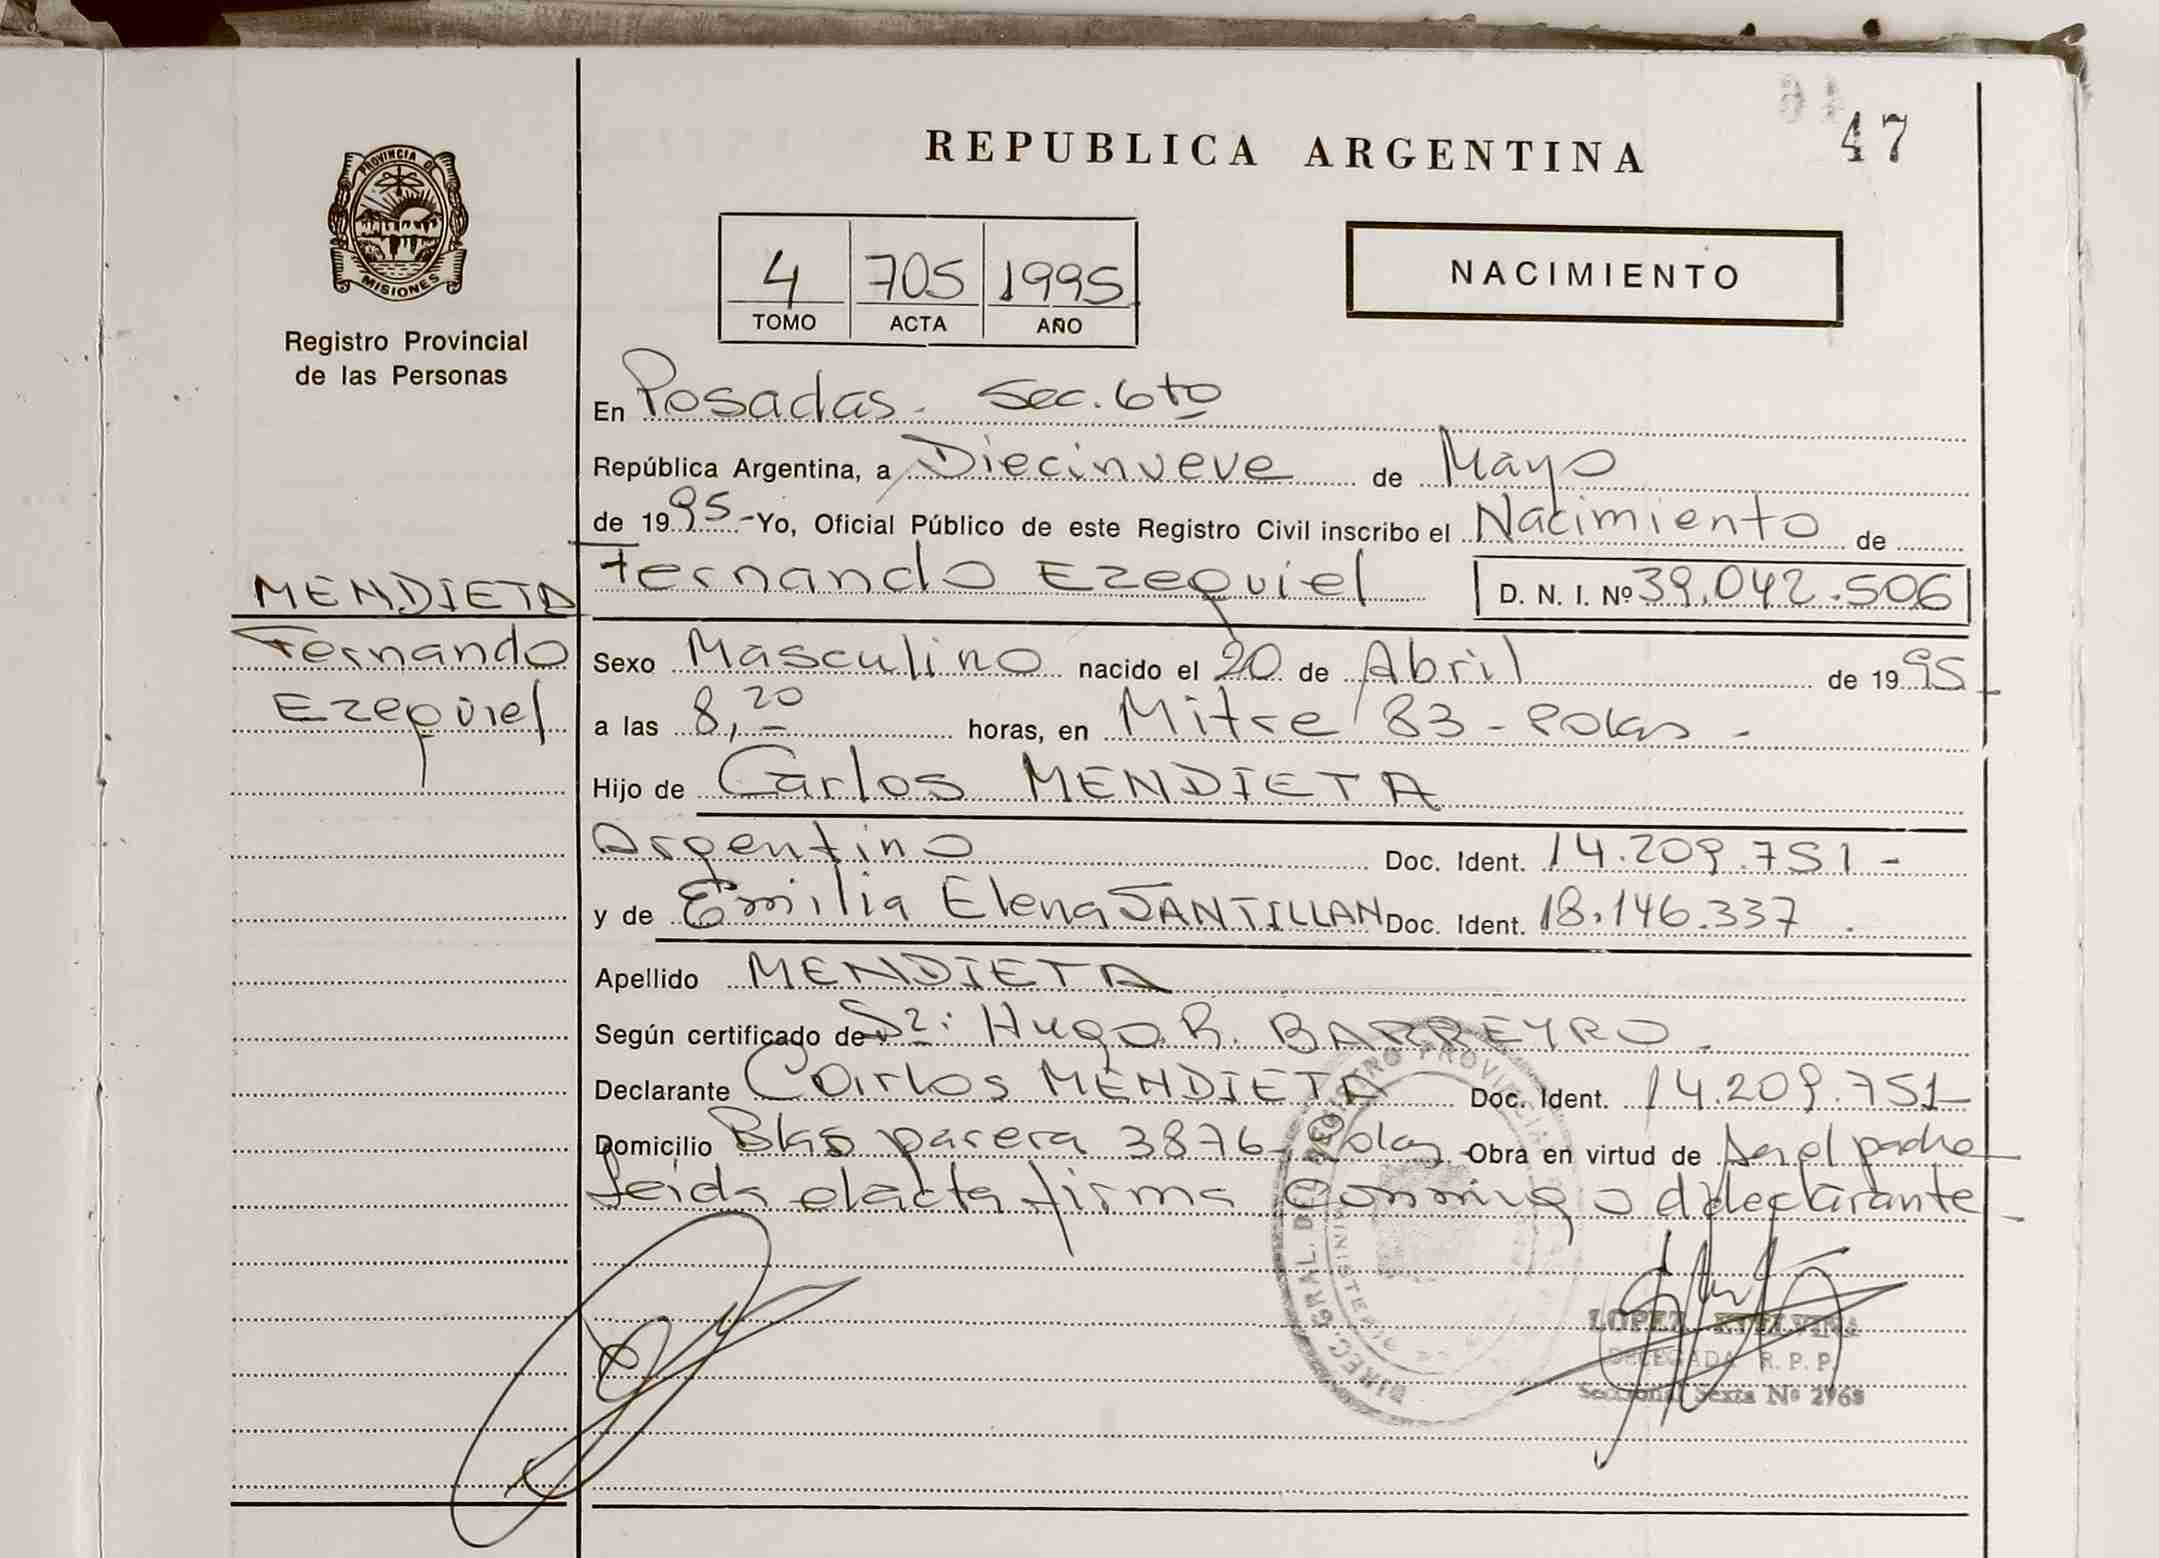 47
REPUBLICA ARGENTINA
PROVINCIA DE
MISIONES
Registro Provincial
de las Personas
4 705 1995
TOMO ACTA AÑO
NACIMIENTO
En Posadas - Sec. 6to
República Argentina, a Diecinueve de Mayo
de 1995 - Yo, Oficial Público de este Registro Civil inscribo el Nacimiento de
Fernando Ezequiel D. N. I. Nº 39.042.506
MENDIETA
Fernando
Ezequiel
Sexo Masculino nacido el 20 de Abril de 1995
a las 8,20 horas, en Mitre 83 - Pdas -
Hijo de Carlos MENDIETA
Argentino Doc. Ident. 14.209.751 -
y de Emilia Elena SANTILLAN Doc. Ident. 18.146.337
Apellido MENDIETA
Según certificado de Hugo R. BARREYRO -
Declarante Carlos MENDIETA Doc. Ident. 14.209.751
Domicilio Blas parera 3876 - Pdas Obra en virtud de Ser el padre
leida el acta firma conmigo el declarante
DIREC. GRAL. DEL REGISTRO PROVINCIAL
LOPEZ ETELVINA
DELEGADA R. P. P.
Seccional Sexta Nº 2768